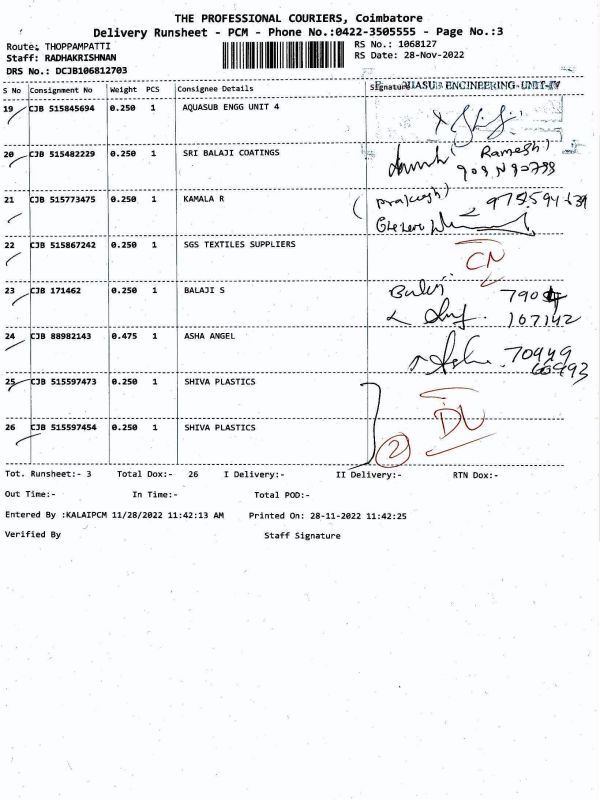 THE PROFESSIONAL COURIERS, Coimbatore
Delivery Runsheet - PCM - Phone No.:0422-3505555 - Page No.:3
Route: THOPPAMPATTI RS No.: 1068127
Staff: RADHAKRISHNAN RS Date: 28-Nov-2022
DRS No.: DCJB106812703
S No Consignment No Weight PCS Consignee Details Signature ENGINEERING-UNIT-IV
19 CJB 515845694 0.250 1 AQUASUB ENGG UNIT 4
20 CJB 515482229 0.250 1 SRI BALAJI COATINGS Ramesh
21 CJB 515773475 0.250 1 KAMALA R
22 CJB 515867242 0.250 1 SGS TEXTILES SUPPLIERS CN
23 CJB 171462 0.250 1 BALAJI S Balaji 7904
107142
24 CJB 88982143 0.475 1 ASHA ANGEL Asha 70949
66993
25 CJB 515597473 0.250 1 SHIVA PLASTICS DL
26 CJB 515597454 0.250 1 SHIVA PLASTICS 2
Tot. Runsheet:- 3 Total Dox:- 26 I Delivery:- II Delivery:- RTN Dox:-
Out Time:- In Time:- Total POD:-
Entered By :KALAIPCM 11/28/2022 11:42:13 AM Printed On: 28-11-2022 11:42:25
Verified By Staff Signature